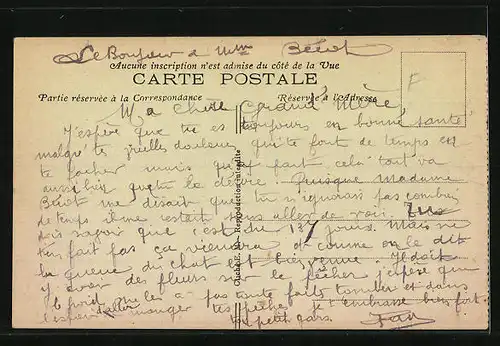 Le Bonjour à Mme Benoit
Aucune inscription n'est admise du côté de la Vue
CARTE POSTALE
Partie réservée à la Correspondance
Réservée à l'Adresse
F
Ma Chère Grand Mère,
J'espère que tu es toujours en bonne santé
malgré tes vieilles douleurs qui te font de temps en
te facher mais que fait cela tout va
aussi bien qu'on le désire. Puisque Madame
me disait que tu n'ignorais pas combien
de temps il me restait vous aller de voir.
savoir que c'est du 137 jours. Mais ne
t'en fait pas ça viendra et comme on le dit
la queue du chat est bien venue. Il doit
y avoir des fleurs sur le pêcher j'espère que
le froid ne les a pas toute faite tomber et dans
l'espoir d'aller manger tes pêches je t'embrasse bien fort
ton petit gars.
Cliché Reproduction interdite